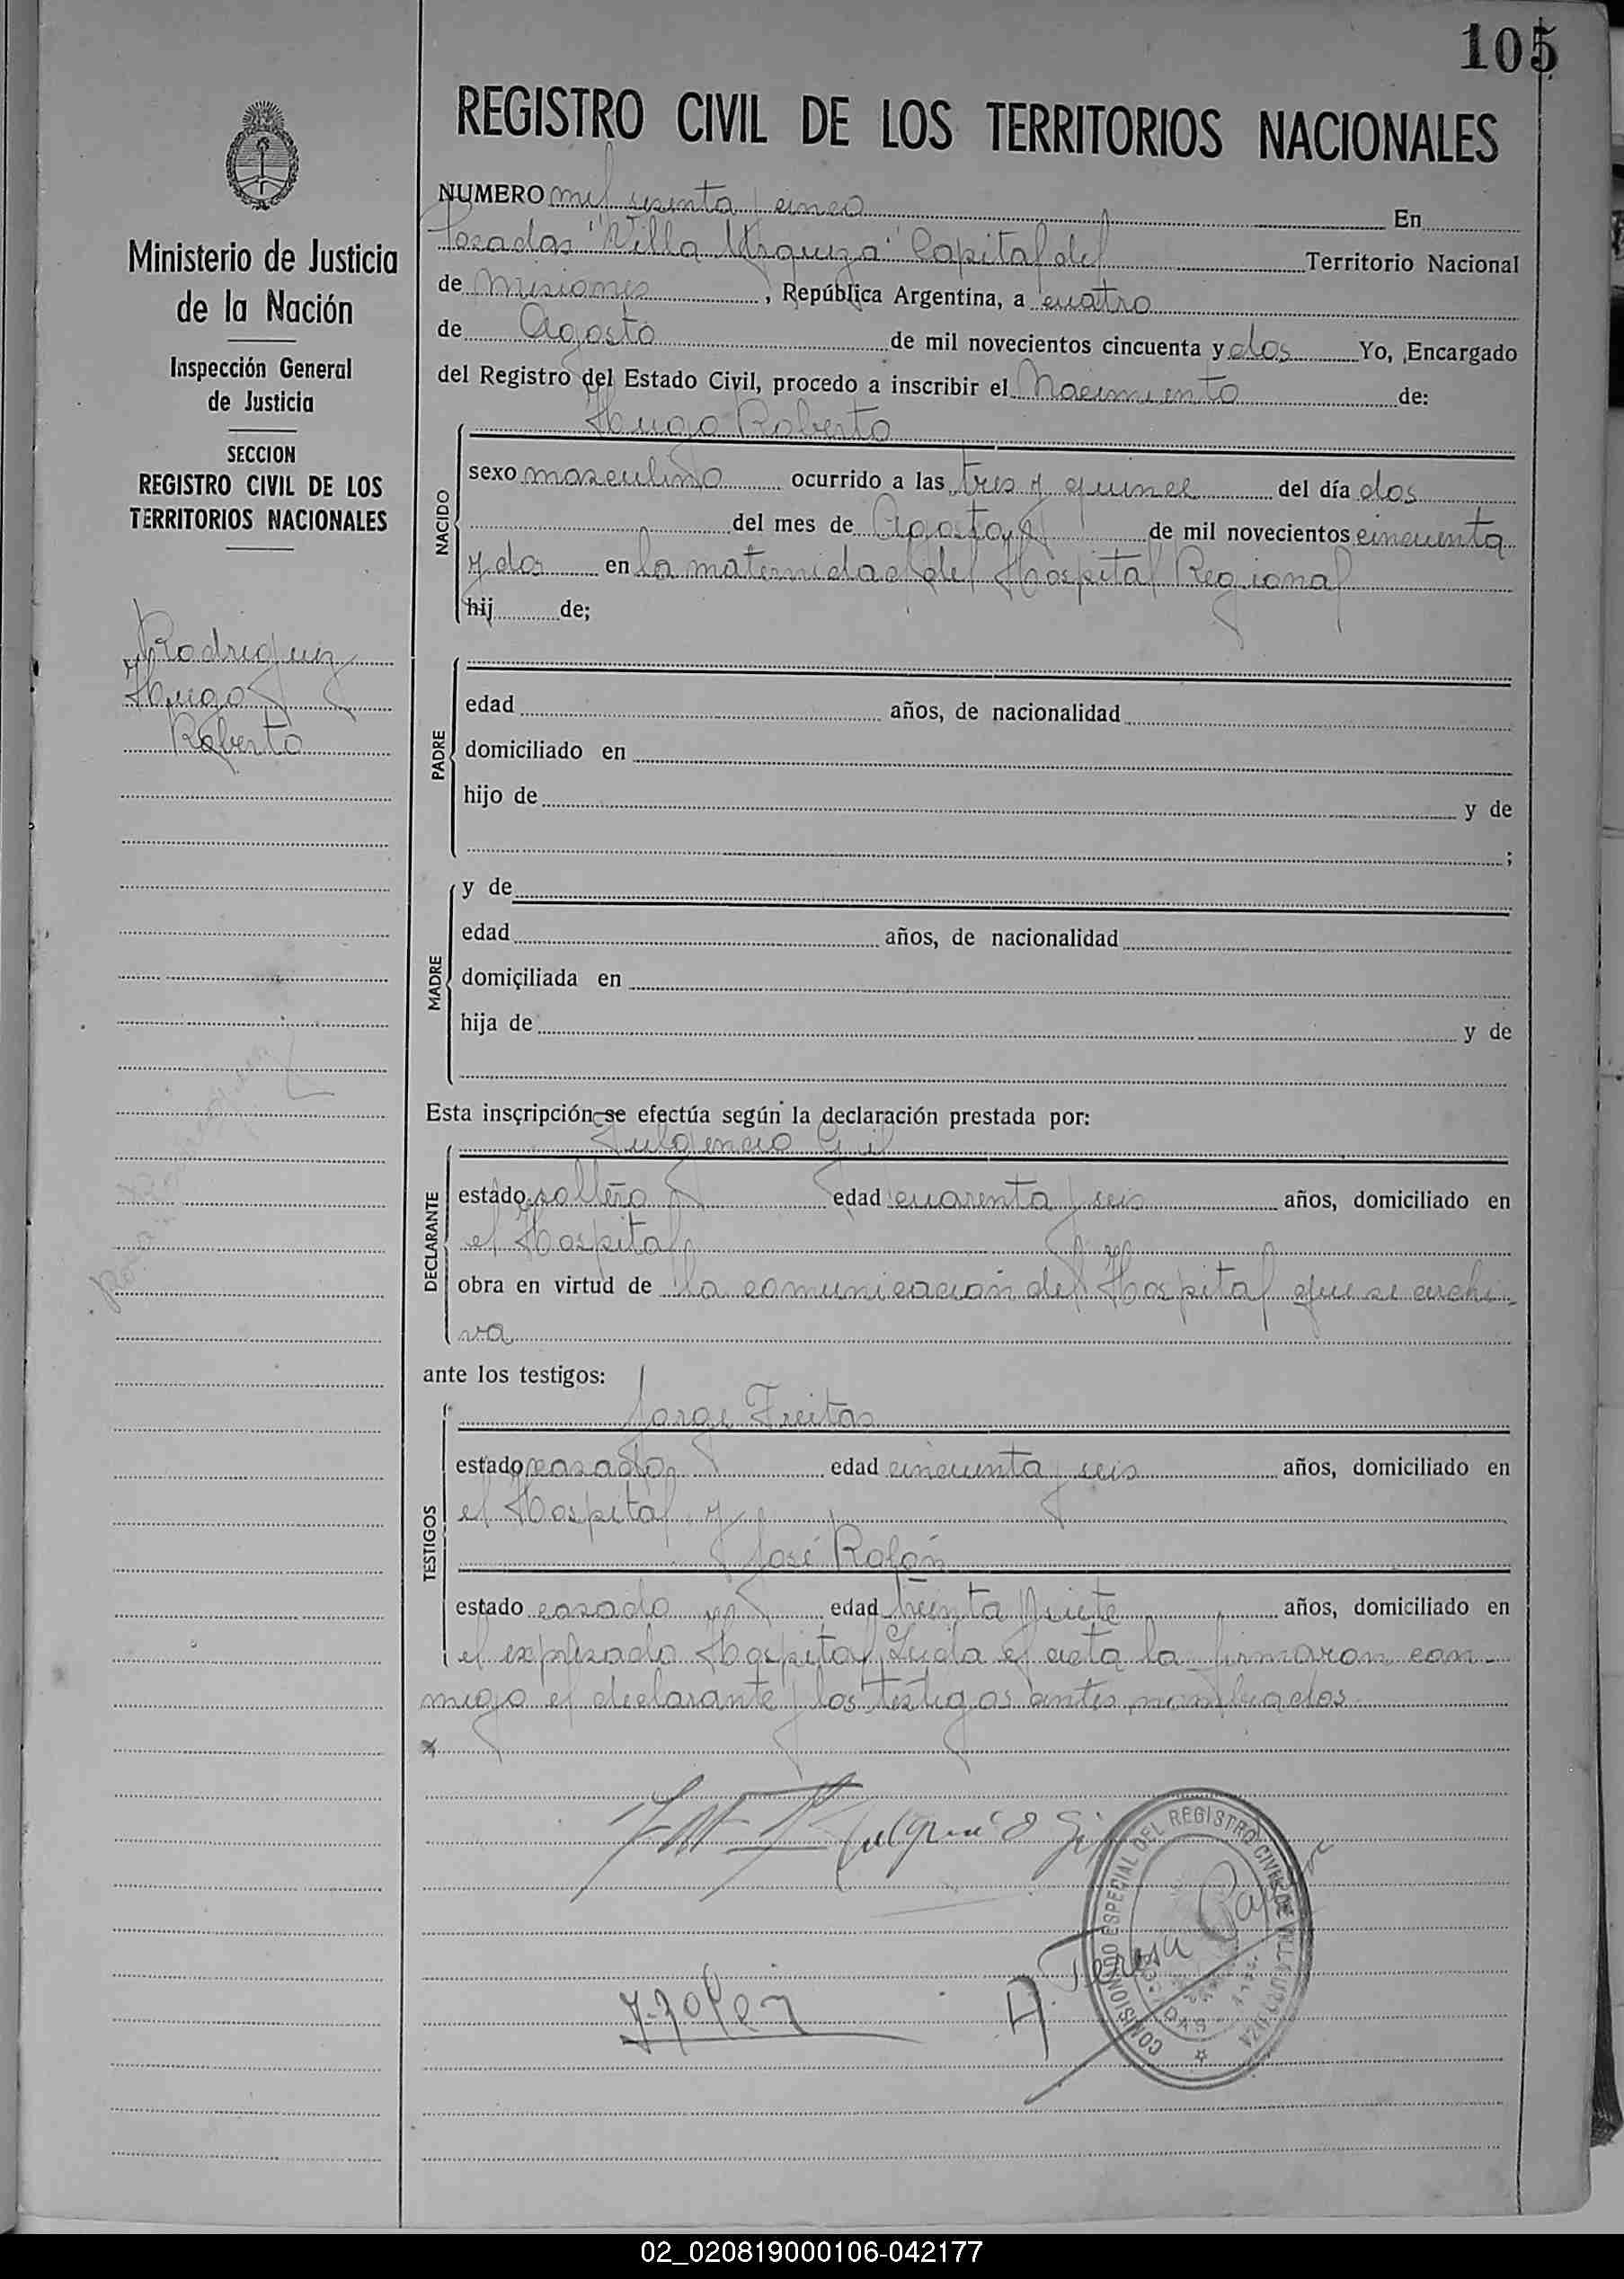 105
REGISTRO CIVIL DE LOS TERRITORIOS NACIONALES
Ministerio de Justicia
de la Nación
Inspección General
de Justicia
SECCION
REGISTRO CIVIL DE LOS
TERRITORIOS NACIONALES
Rodriguez
Hugo
Roberto
NUMERO mil sesenta y cinco En
Posadas "Villa Urquiza" Capital del Territorio Nacional
de Misiones, República Argentina, a cuatro
de Agosto de mil novecientos cincuenta y dos Yo, Encargado
del Registro del Estado Civil, procedo a inscribir el Nacimiento de:
Hugo Roberto
NACIDO
sexo masculino ocurrido a las tres y quince del día dos
del mes de Agosto de mil novecientos cincuenta
y dos en la maternidad del Hospital Regional
hij de;
PADRE
edad años, de nacionalidad
domiciliado en
hijo de y de
;
MADRE
y de
edad años, de nacionalidad
domiciliada en
hija de y de
Esta inscripción se efectúa según la declaración prestada por:
Fulgencio Gil
DECLARANTE
estado soltero edad cuarenta y seis años, domiciliado en
el Hospital
obra en virtud de la comunicación del Hospital que se archi-
va
ante los testigos:
Jorge Freitas
TESTIGOS
estado casado edad cincuenta y seis años, domiciliado en
el Hospital y
José Rolón
estado casado edad treinta y siete años, domiciliado en
el expresado Hospital Leida el acta la firmaron con-
migo el declarante y los testigos antes nombrados
Fulgencio Gi
COMISIONADO ESPECIAL DEL REGISTRO CIVIL DE VILLA URQUIZA
A. Teresa
02_020819000106-042177